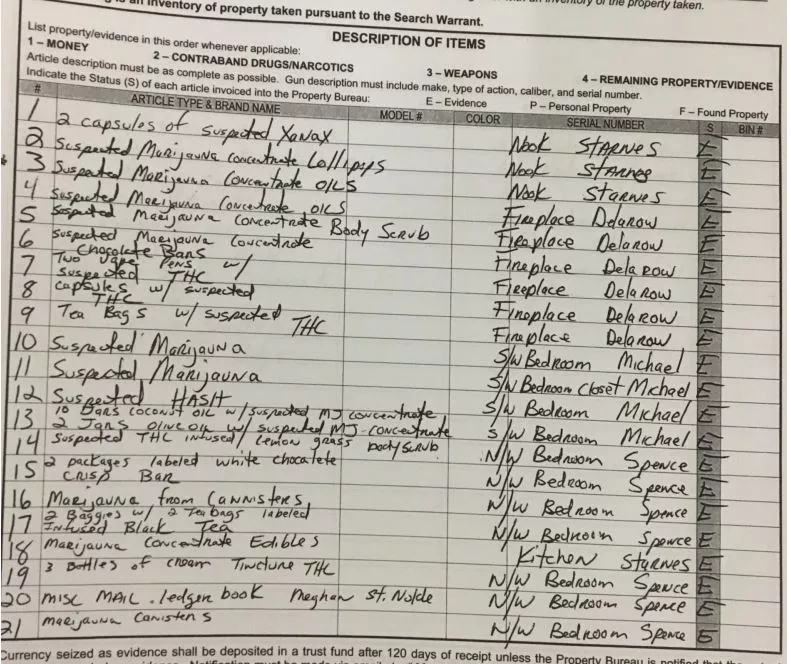 is an Inventory of property taken pursuant to the Search Warrant.
an inventory of the property taken.
DESCRIPTION OF ITEMS
List property/evidence in this order whenever applicable:
1 – MONEY 2 – CONTRABAND DRUGS/NARCOTICS 3 – WEAPONS 4 – REMAINING PROPERTY/EVIDENCE
Article description must be as complete as possible. Gun description must include make, type of action, caliber, and serial number.
Indicate the Status (S) of each article invoiced into the Property Bureau: E – Evidence P – Personal Property F – Found Property
# ARTICLE TYPE & BRAND NAME MODEL # COLOR SERIAL NUMBER S BIN #
1 2 capsules of suspected Xanax Nook STARNES E
2 Suspected Marijauna Concentrate Lollipops Nook STARNES E
3 Suspected Marijauna Concentrate OILS Nook STARNES E
4 Suspected Marijauna Concentrate OILS Fireplace Delarow E
5 Suspected Marijauna Concentrate Body Scrub Fireplace Delarow E
6 Suspected Marijauna Concentrate
Chocolate Bars Fireplace Delarow E
7 Two Vape Pens w/
Suspected THC Fireplace Delarow E
8 Capsules w/ suspected
THC Fireplace Delarow E
9 Tea Bags w/ suspected THC Fireplace Delarow E
10 Suspected Marijauna S/W Bedroom Michael E
11 Suspected Marijauna S/W Bedroom Closet Michael E
12 Suspected HASH S/W Bedroom Michael E
13 10 Jars coconut oil w/ suspected MJ concentrate
2 Jars olive oil w/ suspected MJ concentrate S/W Bedroom Michael E
14 Suspected THC infused/ lemon grass body scrub N/W Bedroom Spence E
15 2 packages labeled white chocalete
CRISP BAR N/W Bedroom Spence E
16 Marijauna from Cannisters N/W Bedroom Spence E
17 2 Baggies w/ 2 Tea bags labeled
Infused Black Tea N/W Bedroom Spence E
18 Marijauna Concentrate Edibles Kitchen STARNES E
19 3 Bottles of cream Tincture THC N/W Bedroom Spence E
20 misc MAIL. ledger book Meghan St. N/W Bedroom Spence E
21 marijauna Canisters N/W Bedroom Spence E
Currency seized as evidence shall be deposited in a trust fund after 120 days of receipt unless the Property Bureau is notified that the